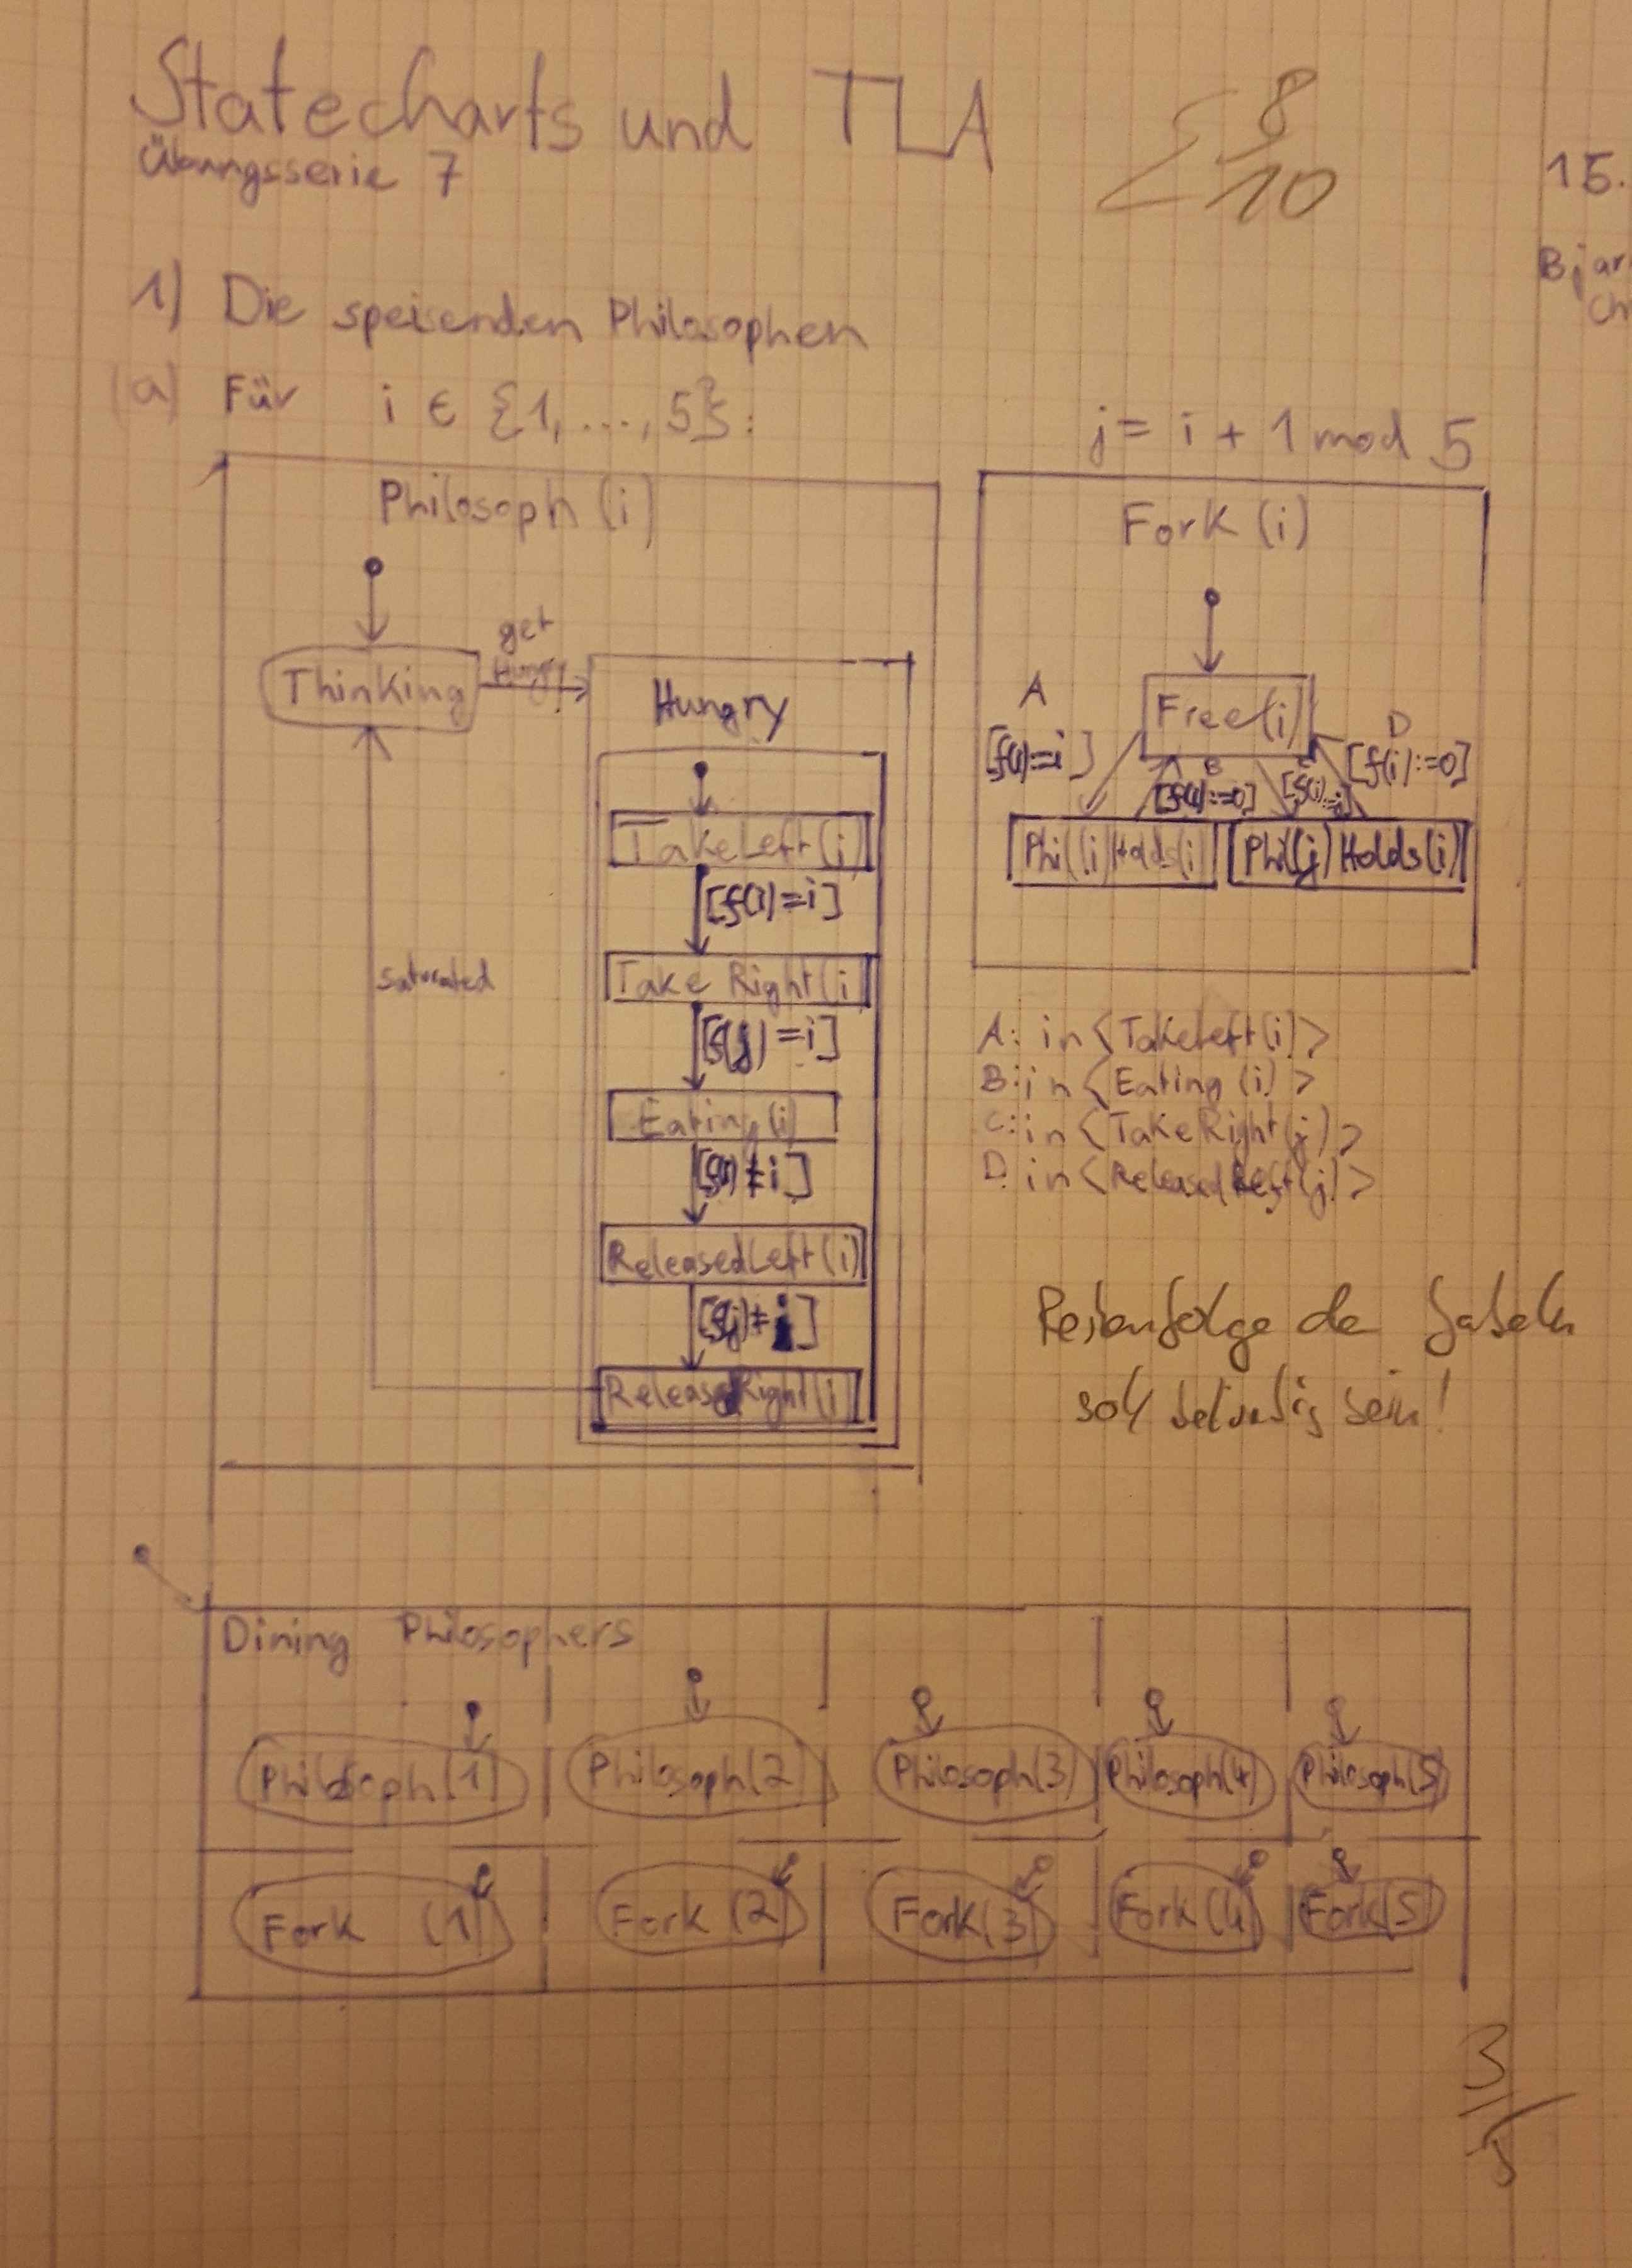 Statecharts und TLA
Übungsserie 7
Σ 8/10
15.
Bjar
Ch
1) Die speisenden Philosophen
(a) Für i ∈ {1, ..., 5}:
j = i + 1 mod 5
Philosoph (i)
Thinking
get
Hungry
Hungry
TakeLeft(i)
[f(i)=i]
Take Right(i)
[f(j)=i]
Eating(i)
[f(i)≠i]
ReleasedLeft(i)
[f(j)≠i]
ReleasedRight(i)
saturated
Fork (i)
Free(i)
A
[f(i):=i]
B
[f(i):=0]
[f(i):=j]
D
[f(i):=0]
Phil(i)Holds(i)
Phil(j)Holds(i)
A: in<TakeLeft(i)>
B: in<Eating(i)>
C: in<TakeRight(j)>
D: in<ReleasedLeft(j)>
Reihenfolge der Gabeln
soll beliebig sein!
Dining Philosophers
Philosoph(1) Philosoph(2) Philosoph(3) Philosoph(4) Philosoph(5)
Fork (1) Fork (2) Fork(3) Fork(4) Fork(5)
3/5